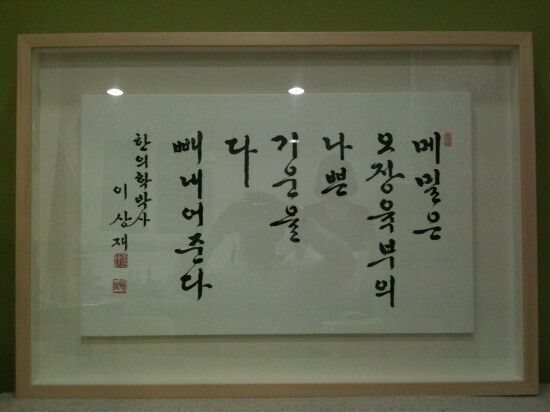 메밀은
오장육부의
나쁜
기운을
다
빼내어준다
한의학박사
이상재